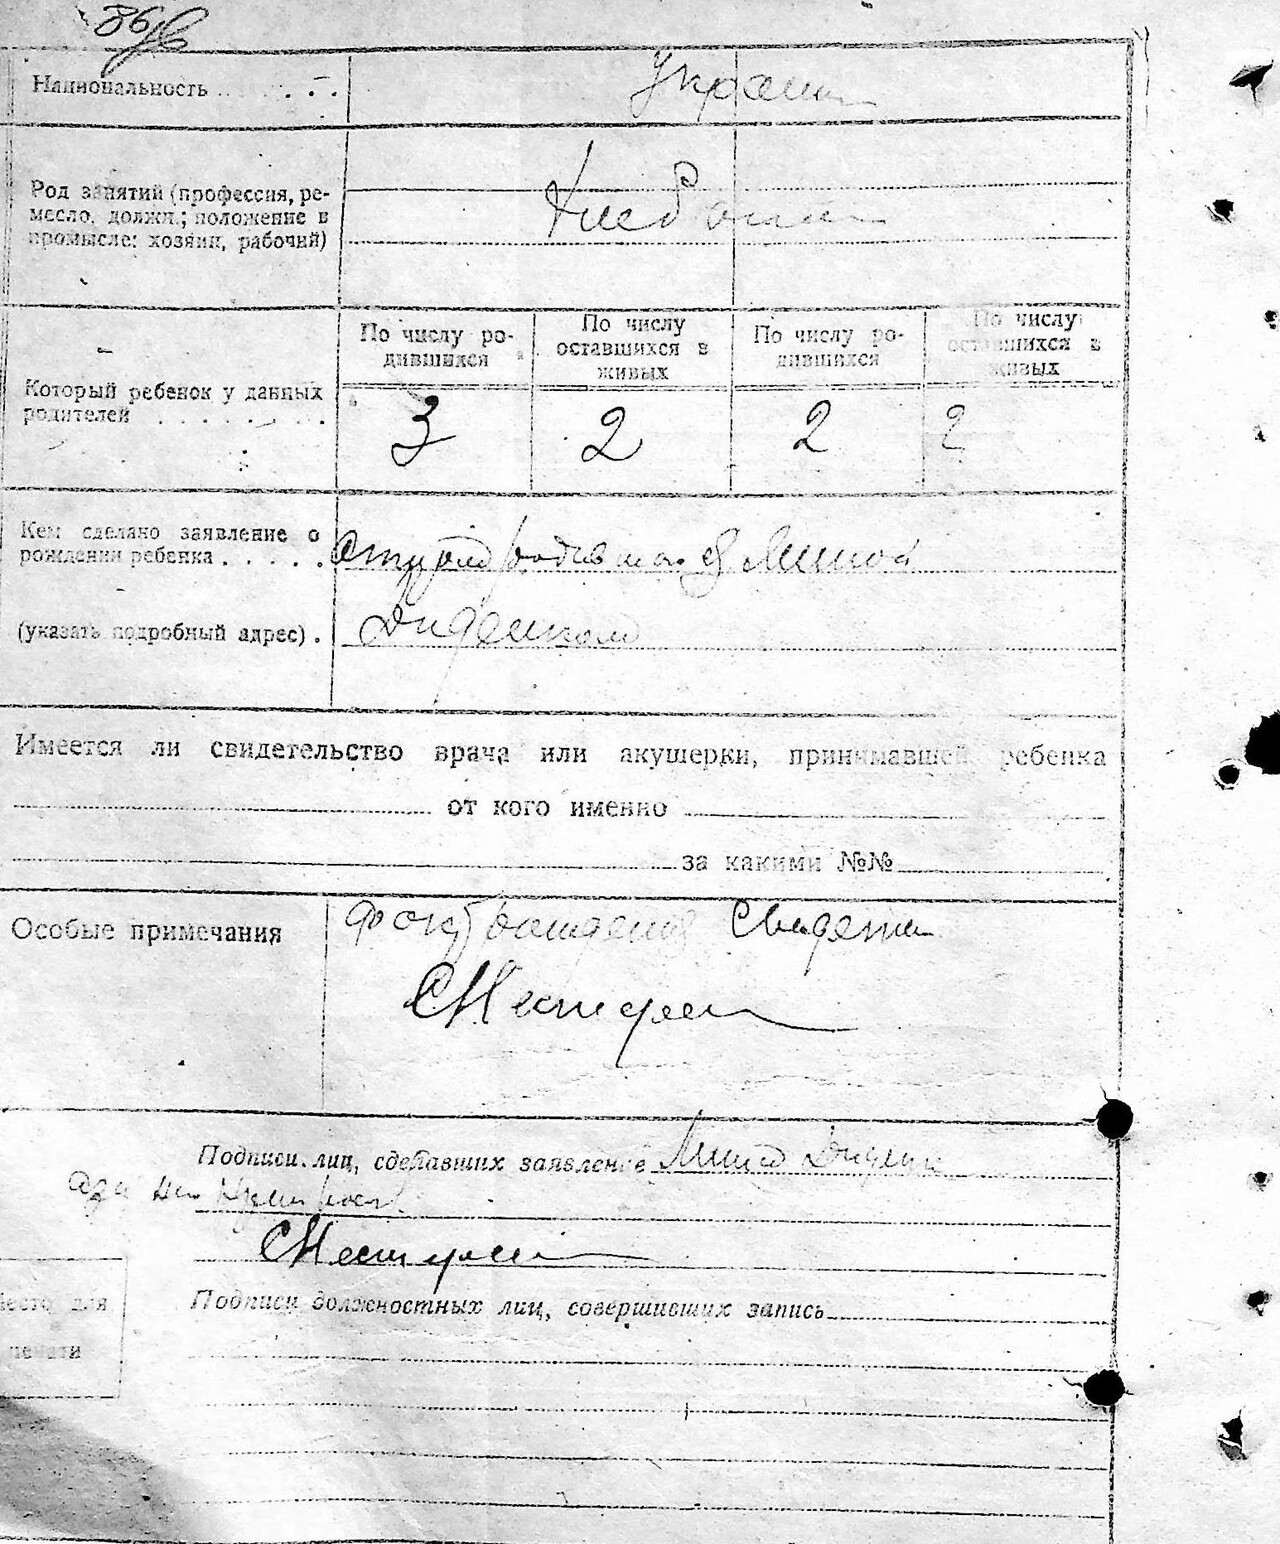 Национальность
Украин
Род занятий (профессия, ре-
месло, должн.; положение в
промысле: хозяин, рабочий)
Хлебопаш
Который ребенок у данных
родителей
По числу ро-
дившихся
По числу
оставшихся в
живых
По числу ро-
дившихся
По числу
оставшихся в
живых
3 2 2 2
Кем сделано заявление о
рождении ребенка
(указать подробный адрес).
Диденком
Имеется ли свидетельство врача или акушерки, принимавшей ребенка
от кого именно
за какими №№
Особые примечания
Факт рождения свидете
Подписи лиц, сделавших заявление
Подписи должностных лиц, совершивших запись
Место для
печати